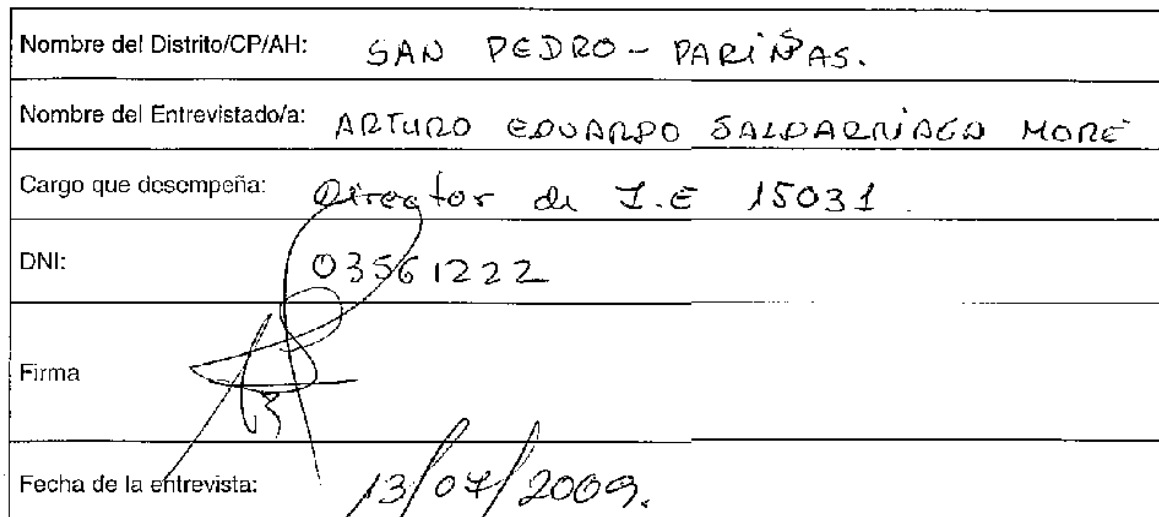 Nombre del Distrito/CP/AH: SAN PEDRO - PARIÑAS.
Nombre del Entrevistado/a: ARTURO EDUARDO SALDARRIAGA MORE
Cargo que desempeña: Director de I.E 15031.
DNI: 03561222
Firma
Fecha de la entrevista: 13/07/2009.